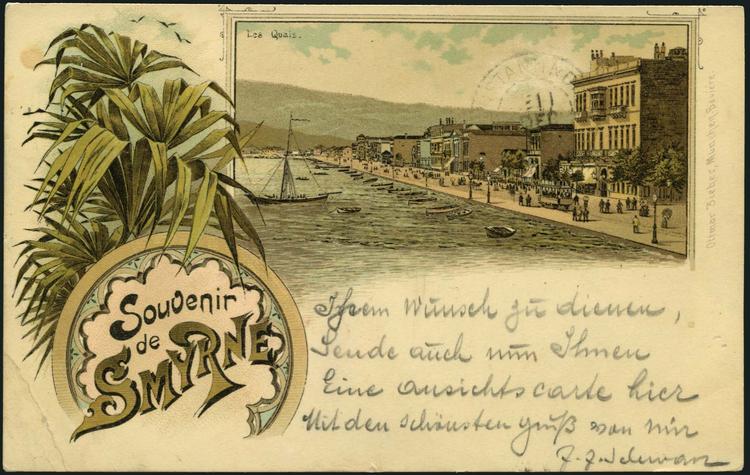 Les Quais.
Souvenir
de
SMYRNE
Ottmar Zieher, München, Bavière
Ihrem Wunsch zu dienen,
Sende auch nun Ihnen
Eine ansichtscarte hier
Mit den schönsten gruß von mir